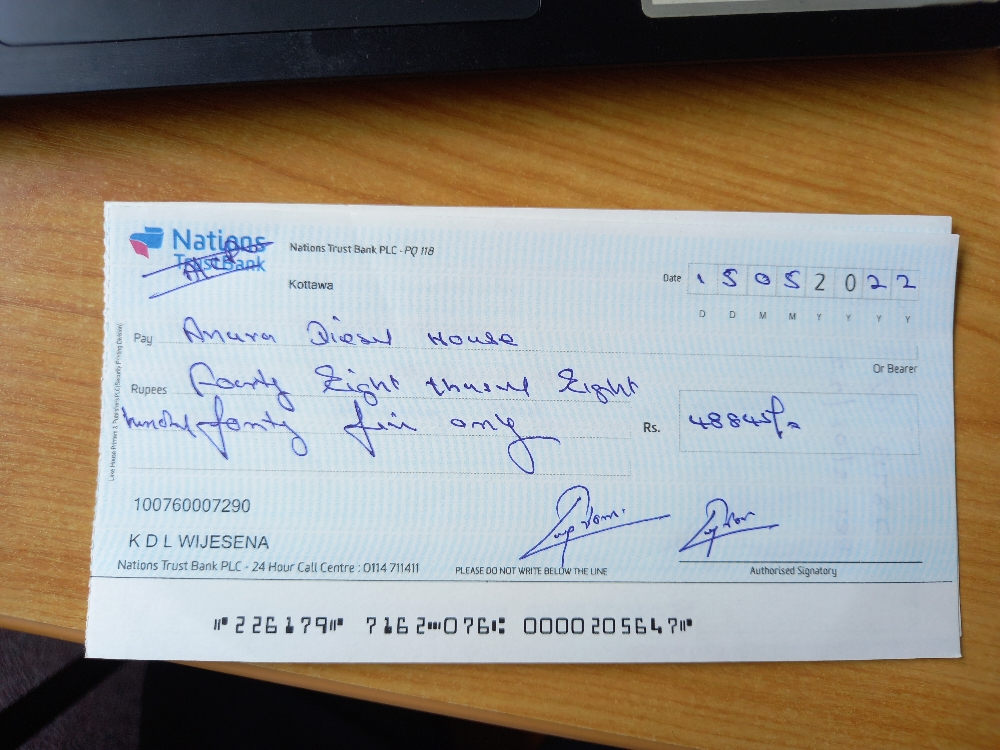 Nations
Trust Bank
Nations Trust Bank PLC - PQ 118
Kottawa
Date 15052022
D D M M Y Y Y Y
Pay Anura Diesel House
Or Bearer
Rupees Fourty Eight thusend Eight
hundred forty five only
Rs. 48845/=
100760007290
K D L WIJESENA
Nations Trust Bank PLC - 24 Hour Call Centre : 0114 711411
PLEASE DO NOT WRITE BELOW THE LINE
Authorised Signatory
⑈226179⑈ 7162⑉076⑆ 0000205647⑈